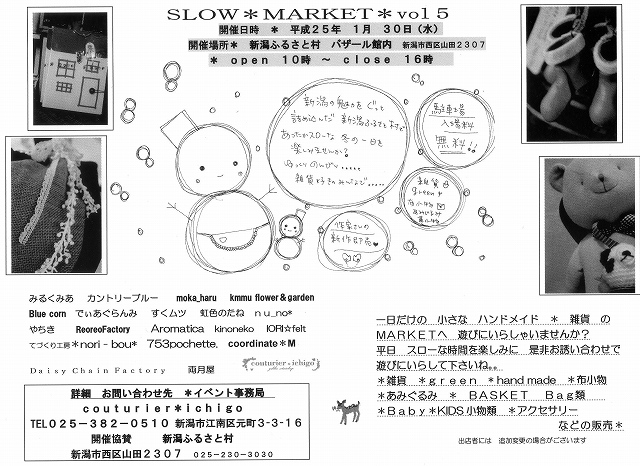 SLOW＊MARKET＊vol5
開催日時　＊　平成25年　1月　30日(水)
開催場所＊　新潟ふるさと村　バザール館内　新潟市西区山田2307
＊　open　10時　～　close　16時
新潟の魅力をぐっと
詰め込んだ 新潟ふるさと村で
あったかスローな 冬の一日を
楽しみませんか？
ゆっくりのんびり‥‥‥
雑貨好きのみんなで‥‥‥
駐車場
入場料
無料!!
雑貨
green
布小物
あみぐるみ
作家さんの
新作即売
みるくみあ　カントリーブルー　moka_haru　kmmu flower＆garden
Blue corn　でぃあぐらんみ　すくムツ　虹色のたね　nu_no*
やちき　ReoreoFactory　Aromatica　kinoneko　IORI☆felt
てづくり工房＊nori‐bou＊　753pochette.　coordinate＊M
Daisy Chain Factory　両月屋　couturier＊ichigo
詳細　お問い合わせ先　＊イベント事務局
couturier＊ichigo
TEL025－382－0510 新潟市江南区元町3-3-16
開催協賛　新潟ふるさと村
新潟市西区山田2307　025-230-3030
一日だけの　小さな　ハンドメイド　＊　雑貨　の
MARKETへ　遊びにいらしゃいませんか？
平日　スローな時間を楽しみに　是非お誘い合わせで
遊びにいらして下さいね。。
＊雑貨　＊green　＊hand made　＊布小物
＊あみぐるみ　＊　BASKET　Bag類
＊Baby＊KIDS小物類　＊アクセサリー
などの販売＊
出店者には　追加変更の場合がございます